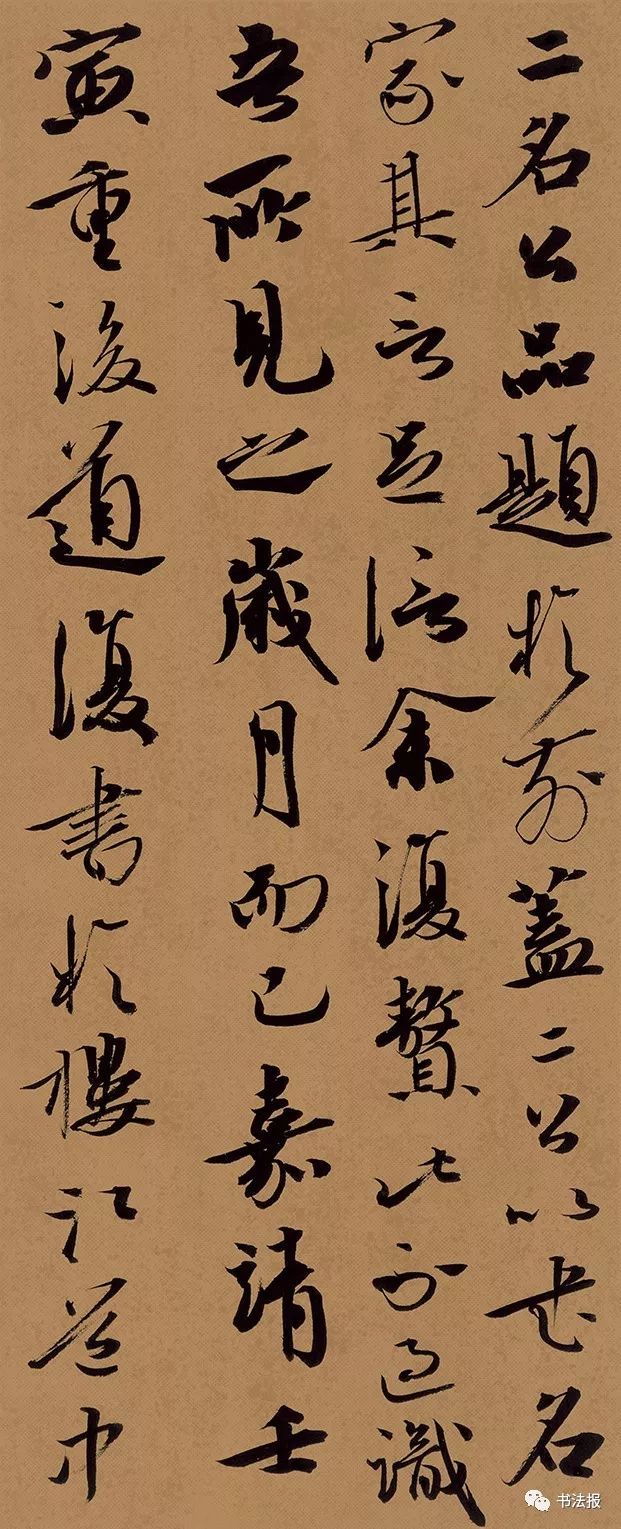 二名公品題於前蓋二公以書名
家其言足信余復贅此不過識
吾所見之歲月而已嘉靖壬
寅重後道復書於樓江道中
书法报